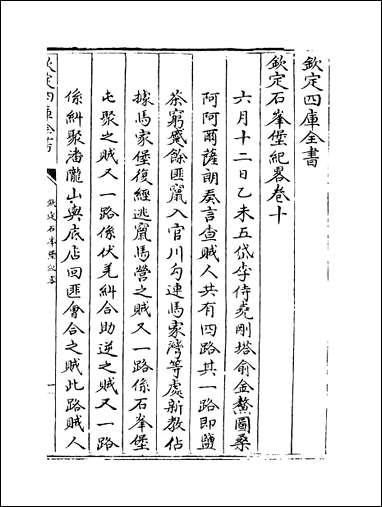 欽定四庫全書
欽定石峯堡紀畧卷十
六月十二日乙未五岱李侍堯剛塔俞金鰲圖桑
阿阿爾薩朗奏言查賊人共有四路其一路即鹽
茶窮蹙餘匪竄入官川勾連馬家灣等處新教佔
據馬家堡復經逃竄馬營之賊又一路係石峯堡
屯聚之賊又一路係伏羌糾合助逆之賊又一路
係糾聚潘隴山與底店回匪會合之賊此路賊人
欽定四庫全書
欽定石峯堡紀畧